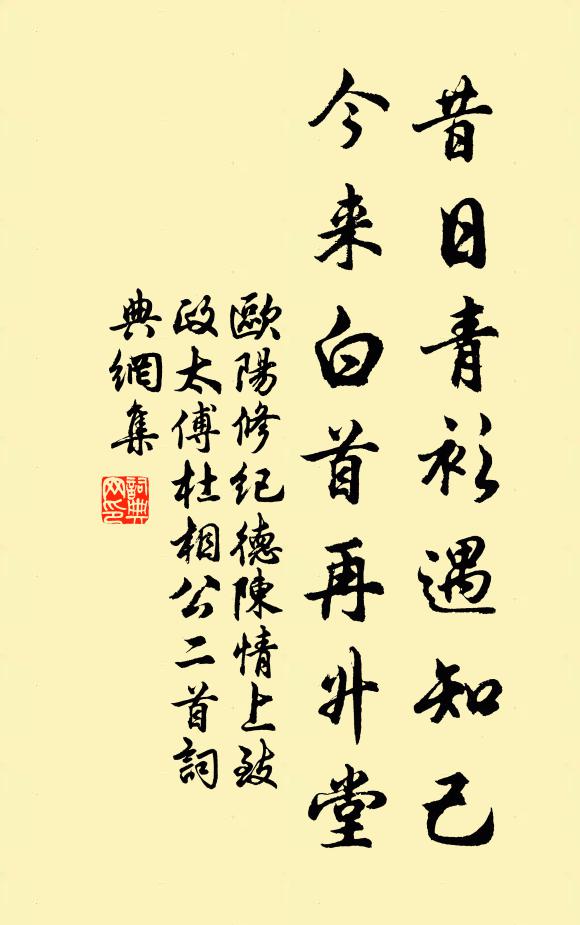 昔日青衫遇知己
今来白首再升堂
歐陽修紀德陳情上致
政太傅杜相公二首詞
典網集
詞典网印